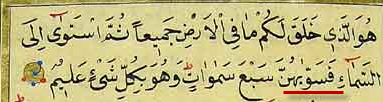 هُوَ الَّذِي خَلَقَ لَكُمْ مَا فِي الْاَرْضِ جَمِيعاً ثُمَّ اسْتَوٰٓى اِلَى
السَّمَٓاءِ فَسَوّٰيهُنَّ سَبْعَ سَمٰوَاتٍ وَهُوَ بِكُلِّ شَيْءٍ عَلِيمٌ